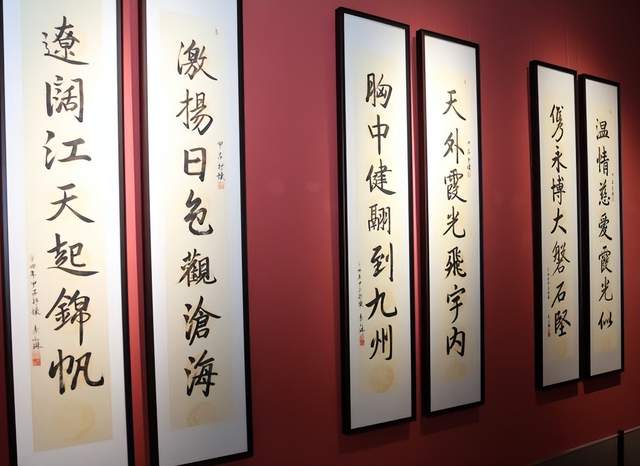 温情慈愛霞光似
儁永博大磐石堅
天外霞光飛宇内
甲辰抒懷
胸中健翮到九州
激揚日色觀滄海
甲辰抒懷
遼闊江天起錦帆